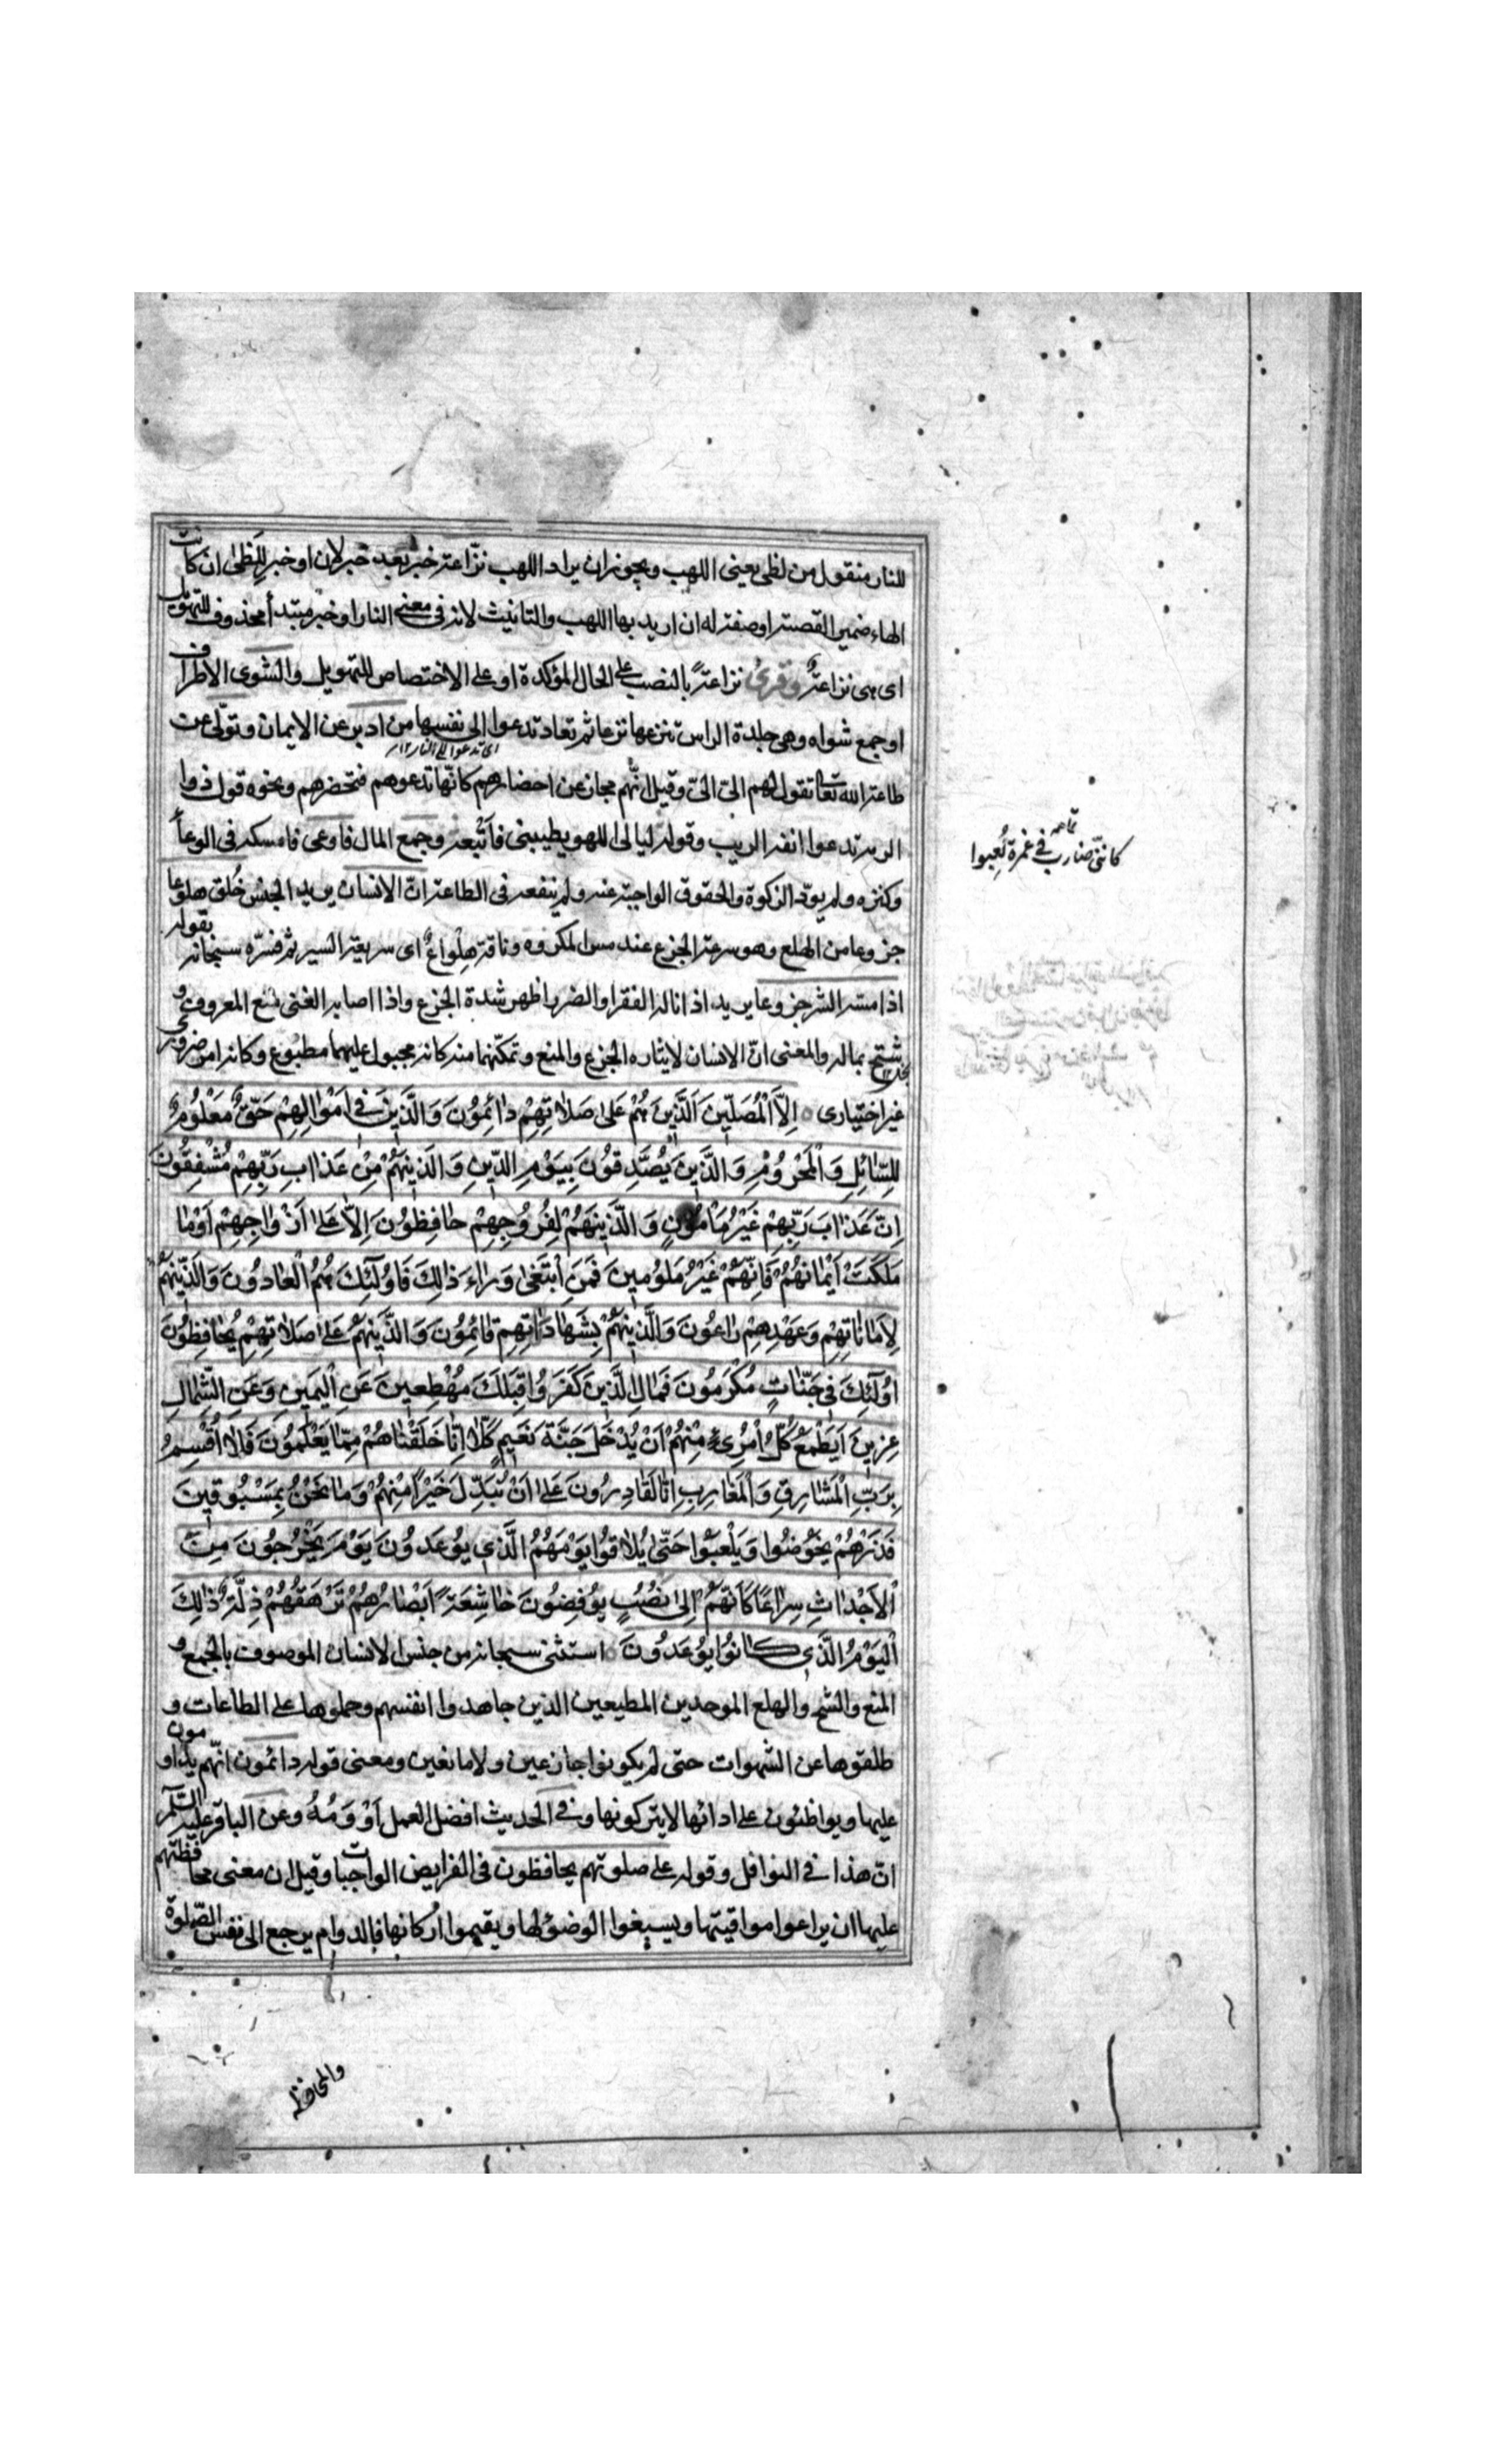 للنار منقول من لظى يعنى اللهب ويجوز ان يراد اللهب نزّاعة خبر بعد خبر لان او خبر للظى ان كانت
الهاء ضمير القصة او صفة له ان اريد بها اللهب والتانيث لانه فى معنى النار او خبر مبتدأ محذوف للتهويل
اى هى نزاعةٌ وقرئ نزاعةً بالنصب على الحال المؤكدة او على الاختصاص للتهويل والشوى الاطراف
او جمع شواه وهى جلدة الراس تنزعها نزعا ثم تعاد تدعوا الى نفسها من ادبر عن الايمان وتولّى عن
اى تدعوا الى النار ١٢
طاعة الله تعا تقول لهم الىّ الىّ وقيل انّهم مجاز عن احضارهم كانّها تدعوهم فتحضرهم ونحوه قول ذوا
الرمة تدعوا انفه الريب وقوله ليالى اللهو يطبينى فاتّبعه وجمع المال فاوعى فامسكه فى الوعاً
وكنزه ولم يودّ الزكوة والحقوق الواجبة عنه ولم ينفعه فى الطاعة انّ الانسان يريد الجنس خُلق هلوعا
جزوعا من الهلع وهو سرعة الجزع عند مس المكروه وناقة هلواعٌ اى سريعة السير ثم فسّره سبحانه بقوله
اذا مسه الشر جزوعا يريد اذا ناله الفقر او الضر اظهر شدة الجزع واذا اصابه الغنى منع المعروف و
شتح بماله والمعنى انّ الانسان لايثاره الجزع والمنع وتمكّنهما منه كانه مجبول عليهما مطبوع وكانه امر ضرورى
غير اختيارى ○ اِلاَّ الْمُصَلّينَ اَلَّذينَ هُمْ عَلى صَلاتِهِمْ دائِمُونَ وَالَّذينَ فى اَمْوالِهِمْ حَقٌّ مَعْلُومٌ
لِلسّائِلِ وَالْمَحْرُومِ وَالَّذينَ يُصَدِّقُونَ بِيَوْمِ الدّينِ وَالَّذينَهُمْ مِنْ عَذابِ رَبِّهِمْ مُشْفِقُونَ
اِنَّ عَذابَ رَبِّهِمْ غَيْرُ مَأمُونٍ وَالَّذينَهُمْ لِفُرُوجِهِمْ حافِظُونَ اِلاّ عَلى اَزْواجِهِمْ اَوْ ما
مَلَكَتْ اَيْمانُهُمْ فَاِنَّهُمْ غَيْرُ مَلُومينَ فَمَنِ ابْتَغى وَراءَ ذلِكَ فَاُولئِكَ هُمُ الْعادُونَ وَالَّذينَهُمْ
لِاَماناتِهِمْ وَعَهْدِهِمْ راعُونَ وَالَّذينَهُمْ بِشَهاداتِهِمْ قائِمُونَ وَالَّذينَهُمْ عَلى صَلاتِهِمْ يُحافِظُونَ
اُولئِكَ فى جَنّاتٍ مُكْرَمُونَ فَمالِ الَّذينَ كَفَرُوا قِبَلَكَ مُهْطِعينَ عَنِ الْيَمينِ وَعَنِ الشِّمالِ
عِزينَ اَيَطْمَعُ كُلُّ امْرِىءٍ مِنْهُمْ اَنْ يُدْخَلَ جَنَّةَ نَعيمٍ كَلاّ اِنّا خَلَقْناهُمْ مِمّا يَعْلَمُونَ فَلا اُقْسِمُ
بِرَبِّ الْمَشارِقِ وَالْمَغارِبِ اِنّا لَقادِرُونَ عَلى اَنْ نُبَدِّلَ خَيْراً مِنْهُمْ وَما نَحْنُ بِمَسْبُوقينَ
فَذَرْهُمْ يَخُوضُوا وَيَلْعَبُوا حَتّى يُلاقُوا يَوْمَهُمُ الَّذى يُوعَدُونَ يَوْمَ يَخْرُجُونَ مِنَ
الْاَجْداثِ سِراعًا كَاَنَّهُمْ اِلى نُصُبٍ يُوفِضُونَ خاشِعَةً اَبْصارُهُمْ تَرْهَقُهُمْ ذِلَّةٌ ذلِكَ
الْيَوْمُ الَّذى كانُوا يُوعَدُونَ ○ استثنى سبحانه من جنس الانسان الموصوف بالجمع و
المنع والشح والهلع الموحدين المطيعين الذين جاهدوا انفسهم وحملوها على الطاعات و
طلقوها عن الشهوات حتى لم يكونوا جازعين ولا مانعين ومعنى قوله دائمون انّهم يداومون
عليها ويواظئون على ادائها لايتركونها وفى الحديث افضل العمل اَدْوَمُهُ وعن الباقر عليه السّلم
انّ هذا فى النوافل وقوله على صلوتهم يحافظون فى الفرايض الواجبات وقيل ان معنى محافظتهم
عليها ان يراعوا مواقيتها ويسبغوا الوضؤ لها ويقيموا اركانها فالدوام يرجع الى نفس الصّلوة
والمحافظة
تمامه
كاننى ضارب فى غمرة لَعِبوا